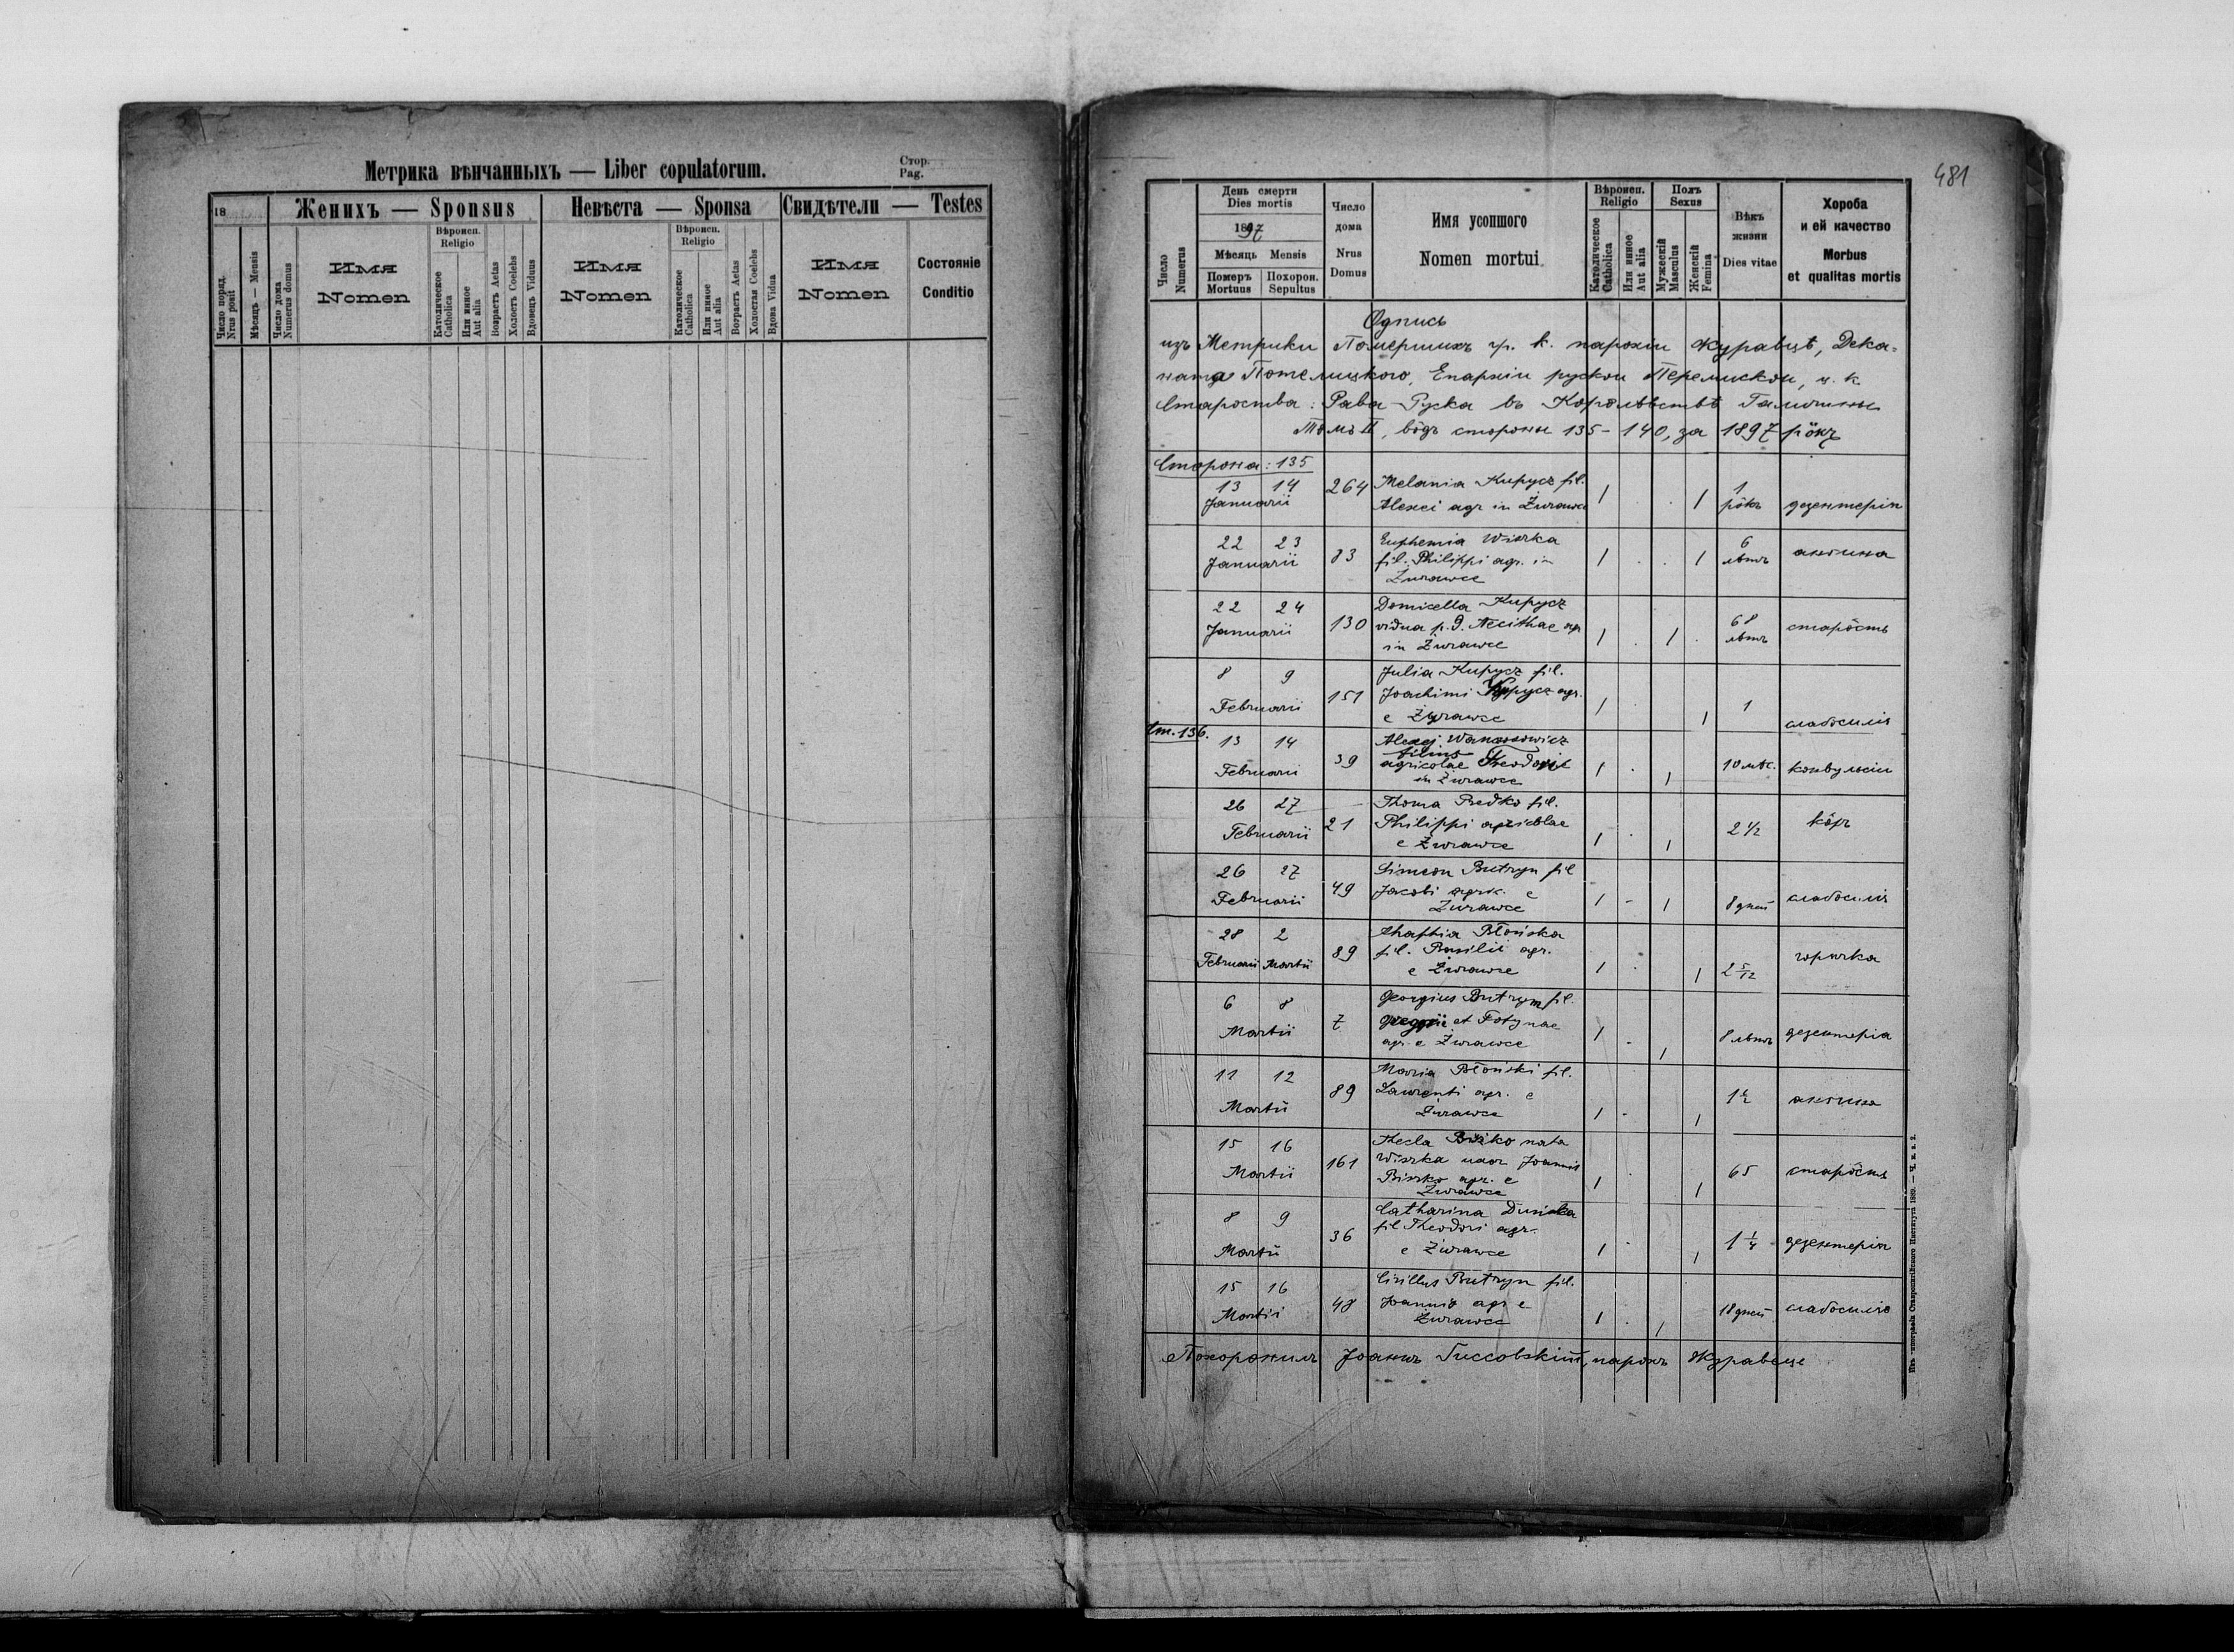 Метрика вѣнчанныхъ — Liber copulatorum.
Стор.
Pag.
18
Женихъ — Sponsus
Невѣста — Sponsa
Свидѣтели — Testes
Число поряд.
Nrus posit
Мѣсяцъ — Mensis
Число дома
Numerus domus
Имя
Nomen
Вѣроисп.
Religio
Католическое
Catholica
Или инное
Aut alia
Возрастъ Aetas
Холостъ Coelebs
Вдовецъ Viduus
Имя
Nomen
Вѣроисп.
Religio
Католическое
Catholica
Или инное
Aut alia
Возрастъ Aetas
Холостая Coelebs
Вдова Vidua
Имя
Nomen
Состояніе
Conditio
481
Число
Numerus
День смерти
Dies mortis
1897
Мѣсяць Mensis
Померъ
Mortuus
Похорон.
Sepultus
Число
дома
Nrus
Domus
Имя усопшого
Nomen mortui
Вѣроисп.
Religio
Католическое
Catholica
Или инное
Aut alia
Полъ
Sexus
Мужескій
Masculus
Женскій
Femina
Вѣкъ
жизни
Dies vitae
Хороба
и ей качество
Morbus
et qualitas mortis
Одпись
изъ Метрики Помершихъ гр. к. парохіи Журавцѣ, Дека-
ната Потелицкого, Епархіи руской Перемиской, ц. к.
Староства: Рава Руска въ Королѣвствѣ Галичины
Томъ II, вôдъ стороны 135-140, за 1897 рôкъ
Сторона: 135
13 14 264 Melania Kupycz fil. 1 . . 1 1
Januarii Alexei agr in Żurawce рôкъ дезентерія
22 23 Euphemia Wiszka 6
Januarii 83 fil. Philippi agr. in 1 . . 1 лѣтъ ангина
Żurawce
22 24 Domicella Kupycz 68
Januarii 130 vidua p. d. Necithae agr 1 . 1 . лѣтъ старôсть
in Żurawce
8 9 Julia Kupycz fil.
Februarii 151 Joachimi Kupycz agr. 1 . 1 1
e Żurawce слабосилія
Ст. 136.
13 14 Alexej
Februarii 39 filius
agricolae Theodori 1 . 1 10 мѣс. конвульсіи
in Żurawce
26 27 Thoma Fedko fil.
Februarii 21 Philippi agricolae 1 . 1 2 1/2 кôръ
e Żurawce
26 27 Simeon Butryn fil
Februarii 49 Jacobi agric. e 1 - 1 8 дней слабосилія
Żurawce
28 2 Ahaphia Błońska
Februarii Martii 89 fil. Basilii agr. 1 . 1 2 5/12 горячка
e Żurawce
6 8 Georgius Butryn fil.
Martii 7 et Fotynae 1 - 1 8 лѣтъ дезентерія
agr. e Żurawce
11 12 Maria Błoński fil.
Martii 89 Laurenti agr. e 1 - 1 1 1/2 ангина
Żurawce
15 16 Thecla nata
Martii 161 Wiszka uxor Joannis 1 . 1 65 старôсть
agr. e
Żurawce
8 9 Catharina
Martii 36 fil Theodori agr. 1 . 1 1 1/4 дезентерія
e Żurawce
15 16 Cirillus Butryn fil.
Martii 48 Joannis agr e 1 . 1 18 дней слабосиліе
Żurawce
Похоронилъ Іоаннъ парохъ Журавеце